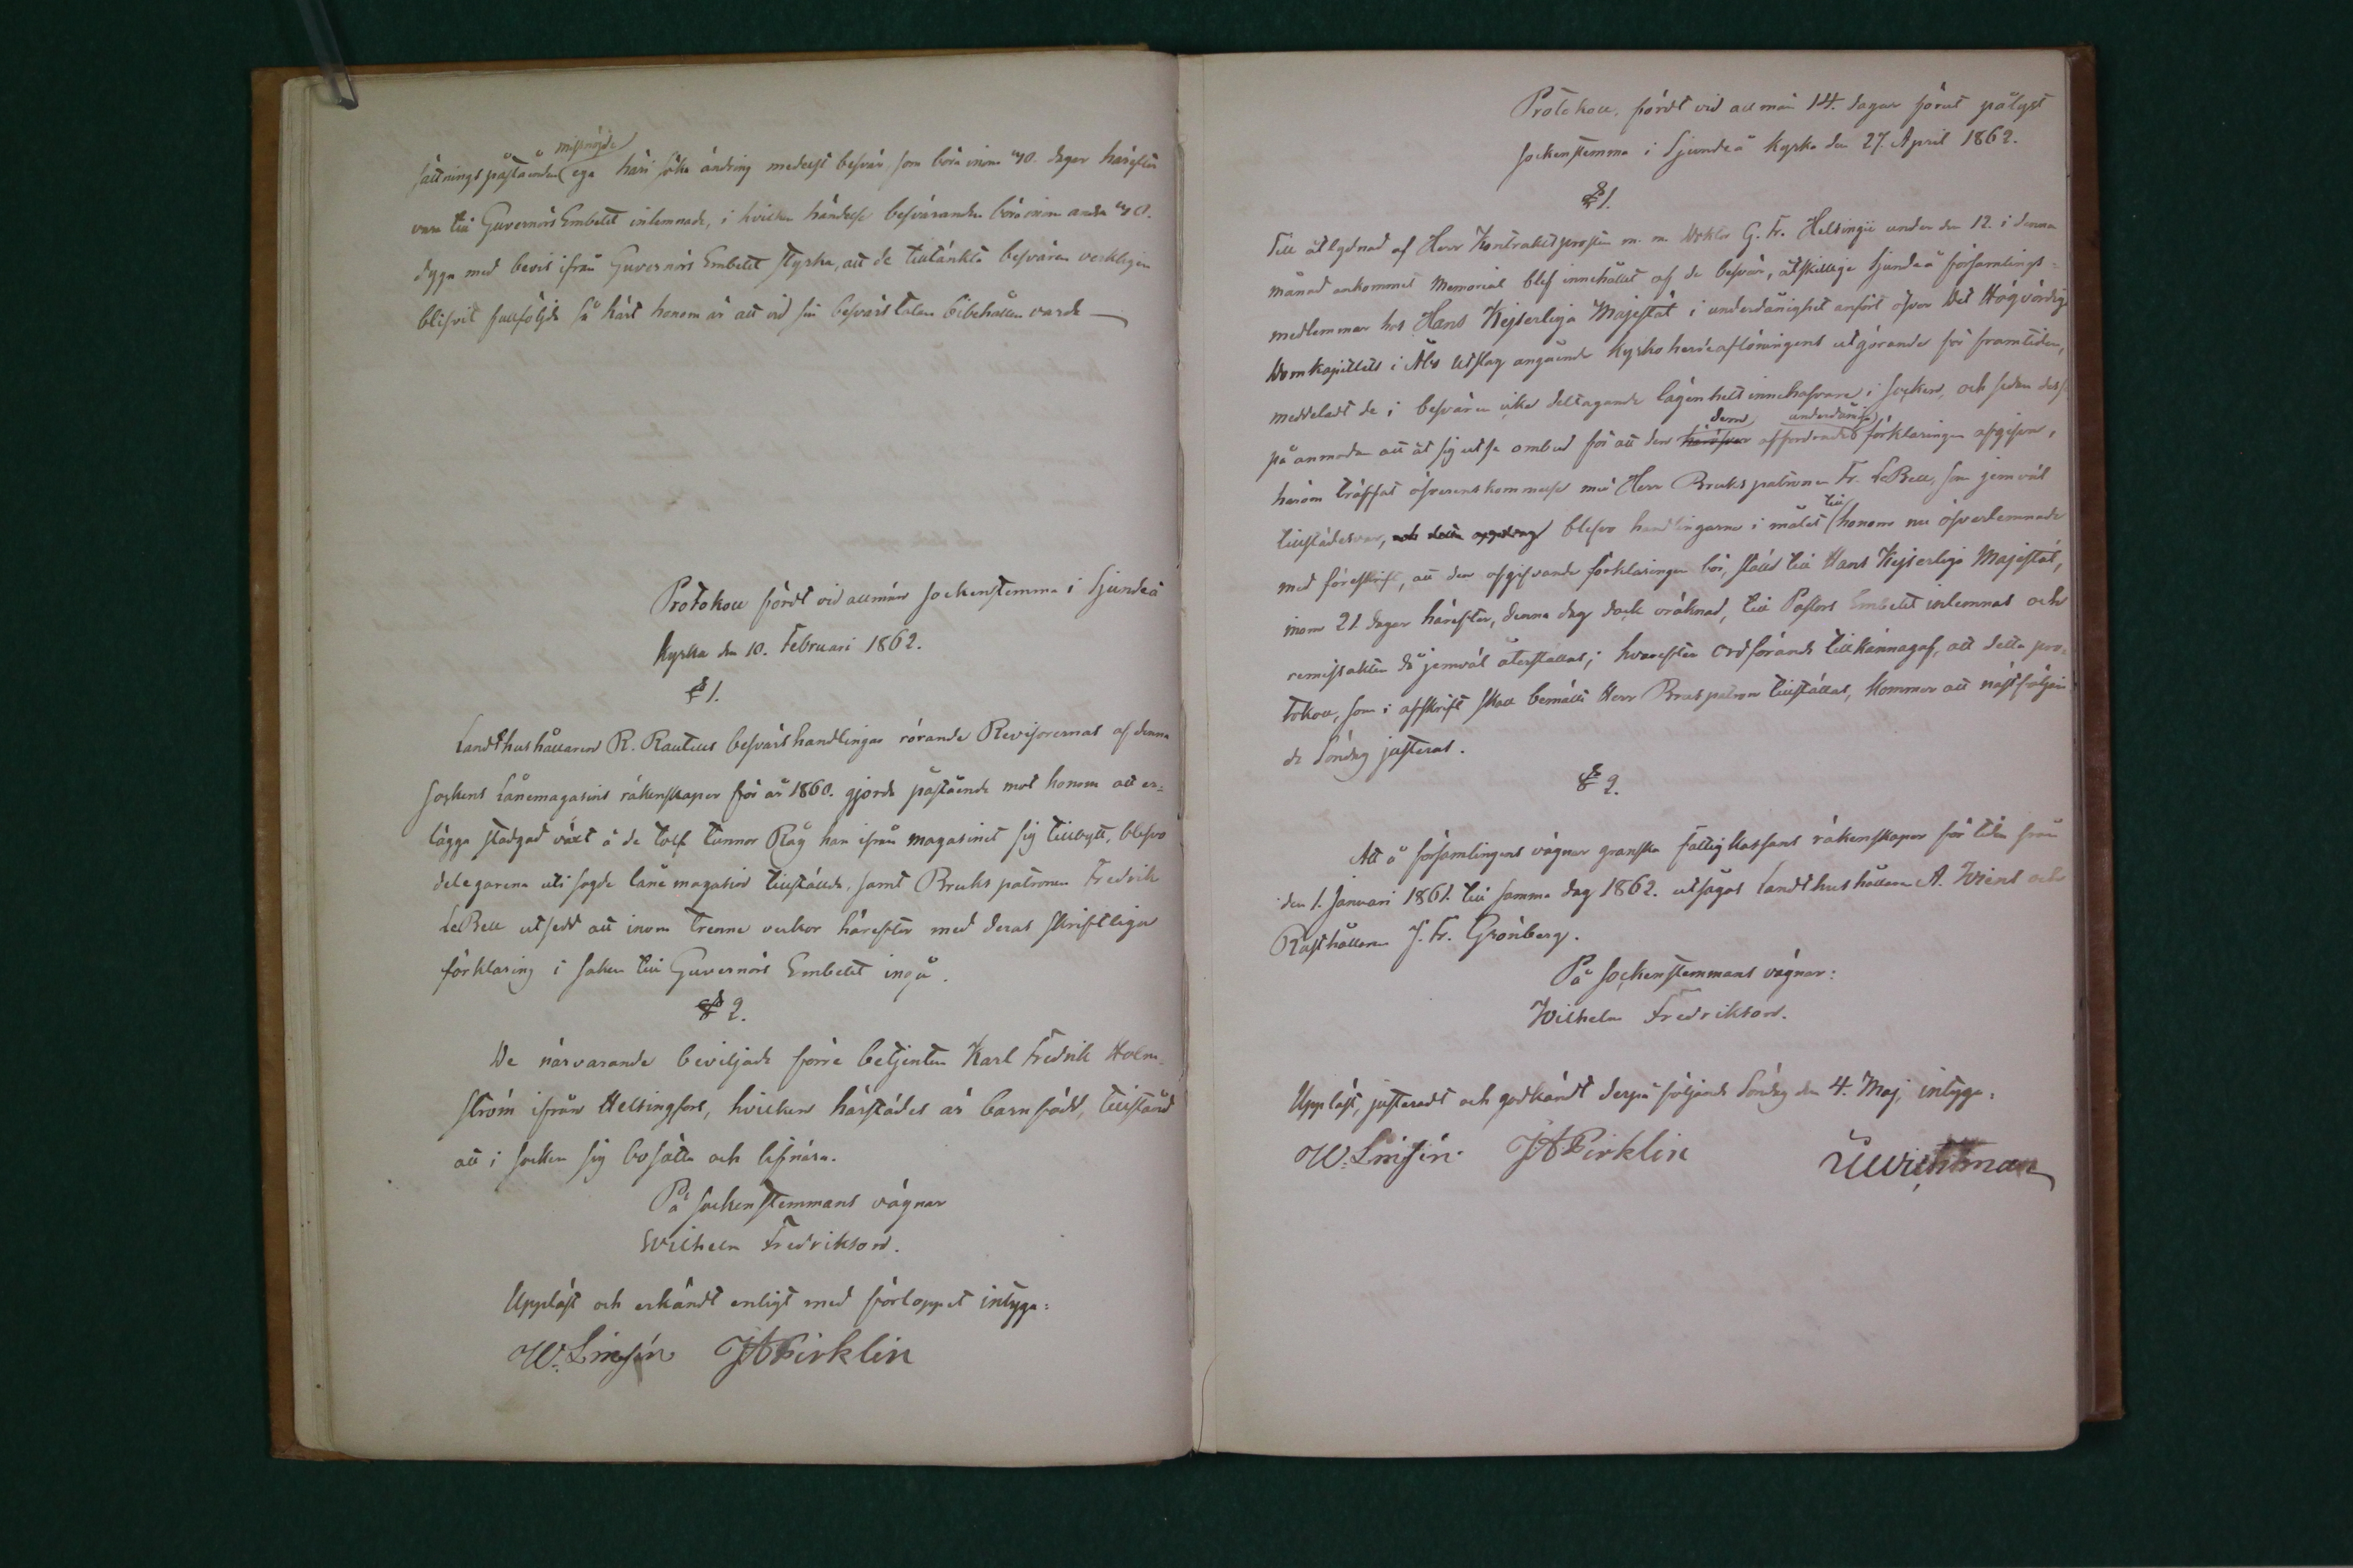 missnöjde
sättningspåståenden ega häri söka ändring medelst besvär, som böra inom dagar härefter
vara till Guvernörs Embetet inlemnade, i hvilken händelse besvärandena böra inom andra
dygn med bevis ifrån Guvernörs Embetet styrka, att de tilltänkta besvären verkligen
blifvit fullföljde så kärt honom är att vid sin besvärstalan bibehållen varda —
Protokoll fördt vid allmän sockenstemma i Sjundeå
Kyrka den 10. Februari 1862.
§ 1.
Landthushållaren R. Rautells besvärshandlingar rörande Revisorernas af denna
sockens Lånemagasins räkenskaper för år 1860. gjorda påstående mot honom att er-
lägga stadgad växt å de tolf tunnor Råg han ifrån magasinet sig tillbytt, blefvo
delegarena uti sagde lånemagasin tillställda, samt Brukspatronen Fredrik
LeBell utsedd att inom trenne veckor härefter med deras skriftliga
förklaring i saken till Guvernörs Embetet ingå.
§ 2.
De närvarande beviljade förre betjenten Karl Fredrik Holm-
ström ifrån Helsingfors, hvilken härstädes är barnfödd, tillstånd
att i socken sig bosätta och lifnära.
På sockenstemmans vägnar
Wilhelm Fredrikson.
Uppläst och erkändt enligt med förloppet intyga:
W. Linsén JAPirklin
Protokoll, fördt vid allmän 14. dagar förut pålyst
sockenstemma i Sjundeå Kyrka den 27. April 1862.
§ 1.
Till åtlydnad af Herr Kontraktsprosten m. m. Doktor G. Fr. Helsingii under den 12. i denna
månad ankommet Memorial blef innehållet af de besvär, åtskillige Sjundeå församlings-
medlemmar hos Hans Kejserliga Majestät i underdånighet anfört öfver Det Högvördiga
Domkapitlets i Åbo Utslag angående Kyrkoherdeaflöningens utgörande för framtiden,
meddeladt de i besvären icke deltagande lägenhetsinnehafvare i socken, och sedan dess
på anmodan att åt sig utse ombud för att den häröfver dem affordrade underdåniga förklaringen afgifva,
herom träffat öfverenskommelse med Herr Brukspatronen Fr. LeBell, som jemväl
tillstädesvar, och detta uppdrag blefvo handlingarna i målet till honom nu öfverlemnade
med föreskrift, att den afgifvande förklaringen bör, ställd till Hans Kejserliga Majestät,
inom 21 dagar härefter, denna dag dock oräknad, till Pastors Embetet inlemnas och
remissakten då jemväl återställas; hvarefter Ordförande tillkännagaf, att detta pro-
tokoll, som i afskrift skall bemälte Herr Brukspatron tillställas, kommer att nästföljan-
de Söndag justeras.
§ 2.
Att å församlingens vägnar granska fattigkassans räkenskaper för tiden från
den 1. Januari 1861. till samma dag 1862. utsågos Landthushållaren A. Wiens och
Rusthållaren J. Fr. Grönberg.
På sockenstemmans vägnar:
Wilhelm Fredrikson.
Uppläst, justeradt och godkändt derpå följande Söndag den 4. Maj, intyga:
W. Linsén JAPirklin Wichtman